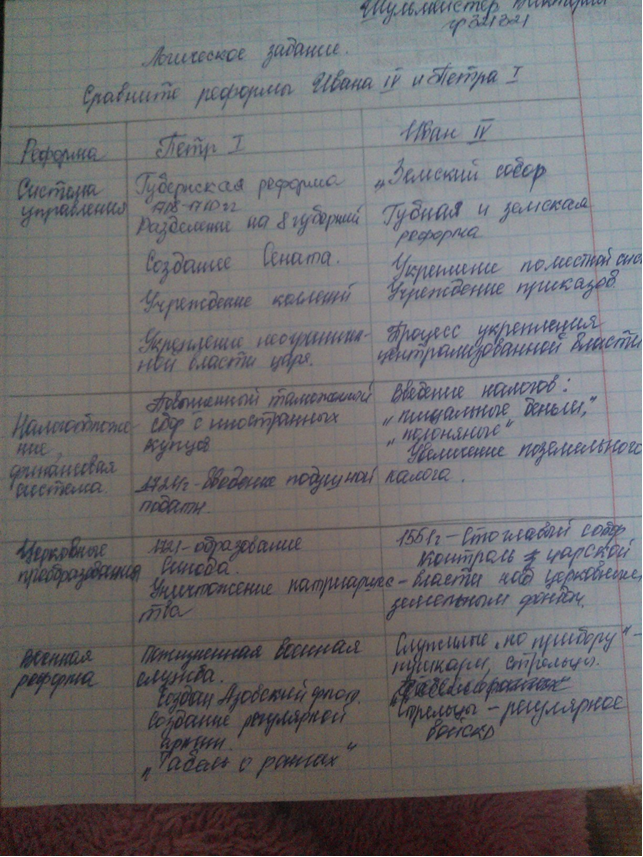 Шульмайстер Виктория
гр 321321
Логическое задание.
Сравните реформы Ивана IV и Петра I
Реформа
Петр I
Иван IV
Система
управления
Губернская реформа
Разделение на 8 губерний
Создание Сената.
Учреждение коллегий
Укрепление неограничен-
ной власти царя.
„Земский собор
Губная и земская
реформа
Укрепление поместной
Учреждение приказов
Процесс укрепления
централизованной власти
Налогообложе-
ние,
финансовая
система
Повышенный таможенный
сбор с иностранных
купцов
1724г-введение подушной
подати.
Введение налогов:
„пищальные деньги,"
„полоняные"
Увеличение поземельного
налога.
Церковные
преобразования
1721-образование
Синода.
Уничтожение патриарше-
тва
1551г-Стоглавый собор
Контроль царской
власти над церковным
земельным фондом.
Военная
реформа
Пожизненная военная
служба.
Создан Азовский флот.
Создание регулярной
армии.
„Табель о рангах"
Служилые „по прибору"-
пушкари, стрельцы.
Стрельцы-регулярное
войско